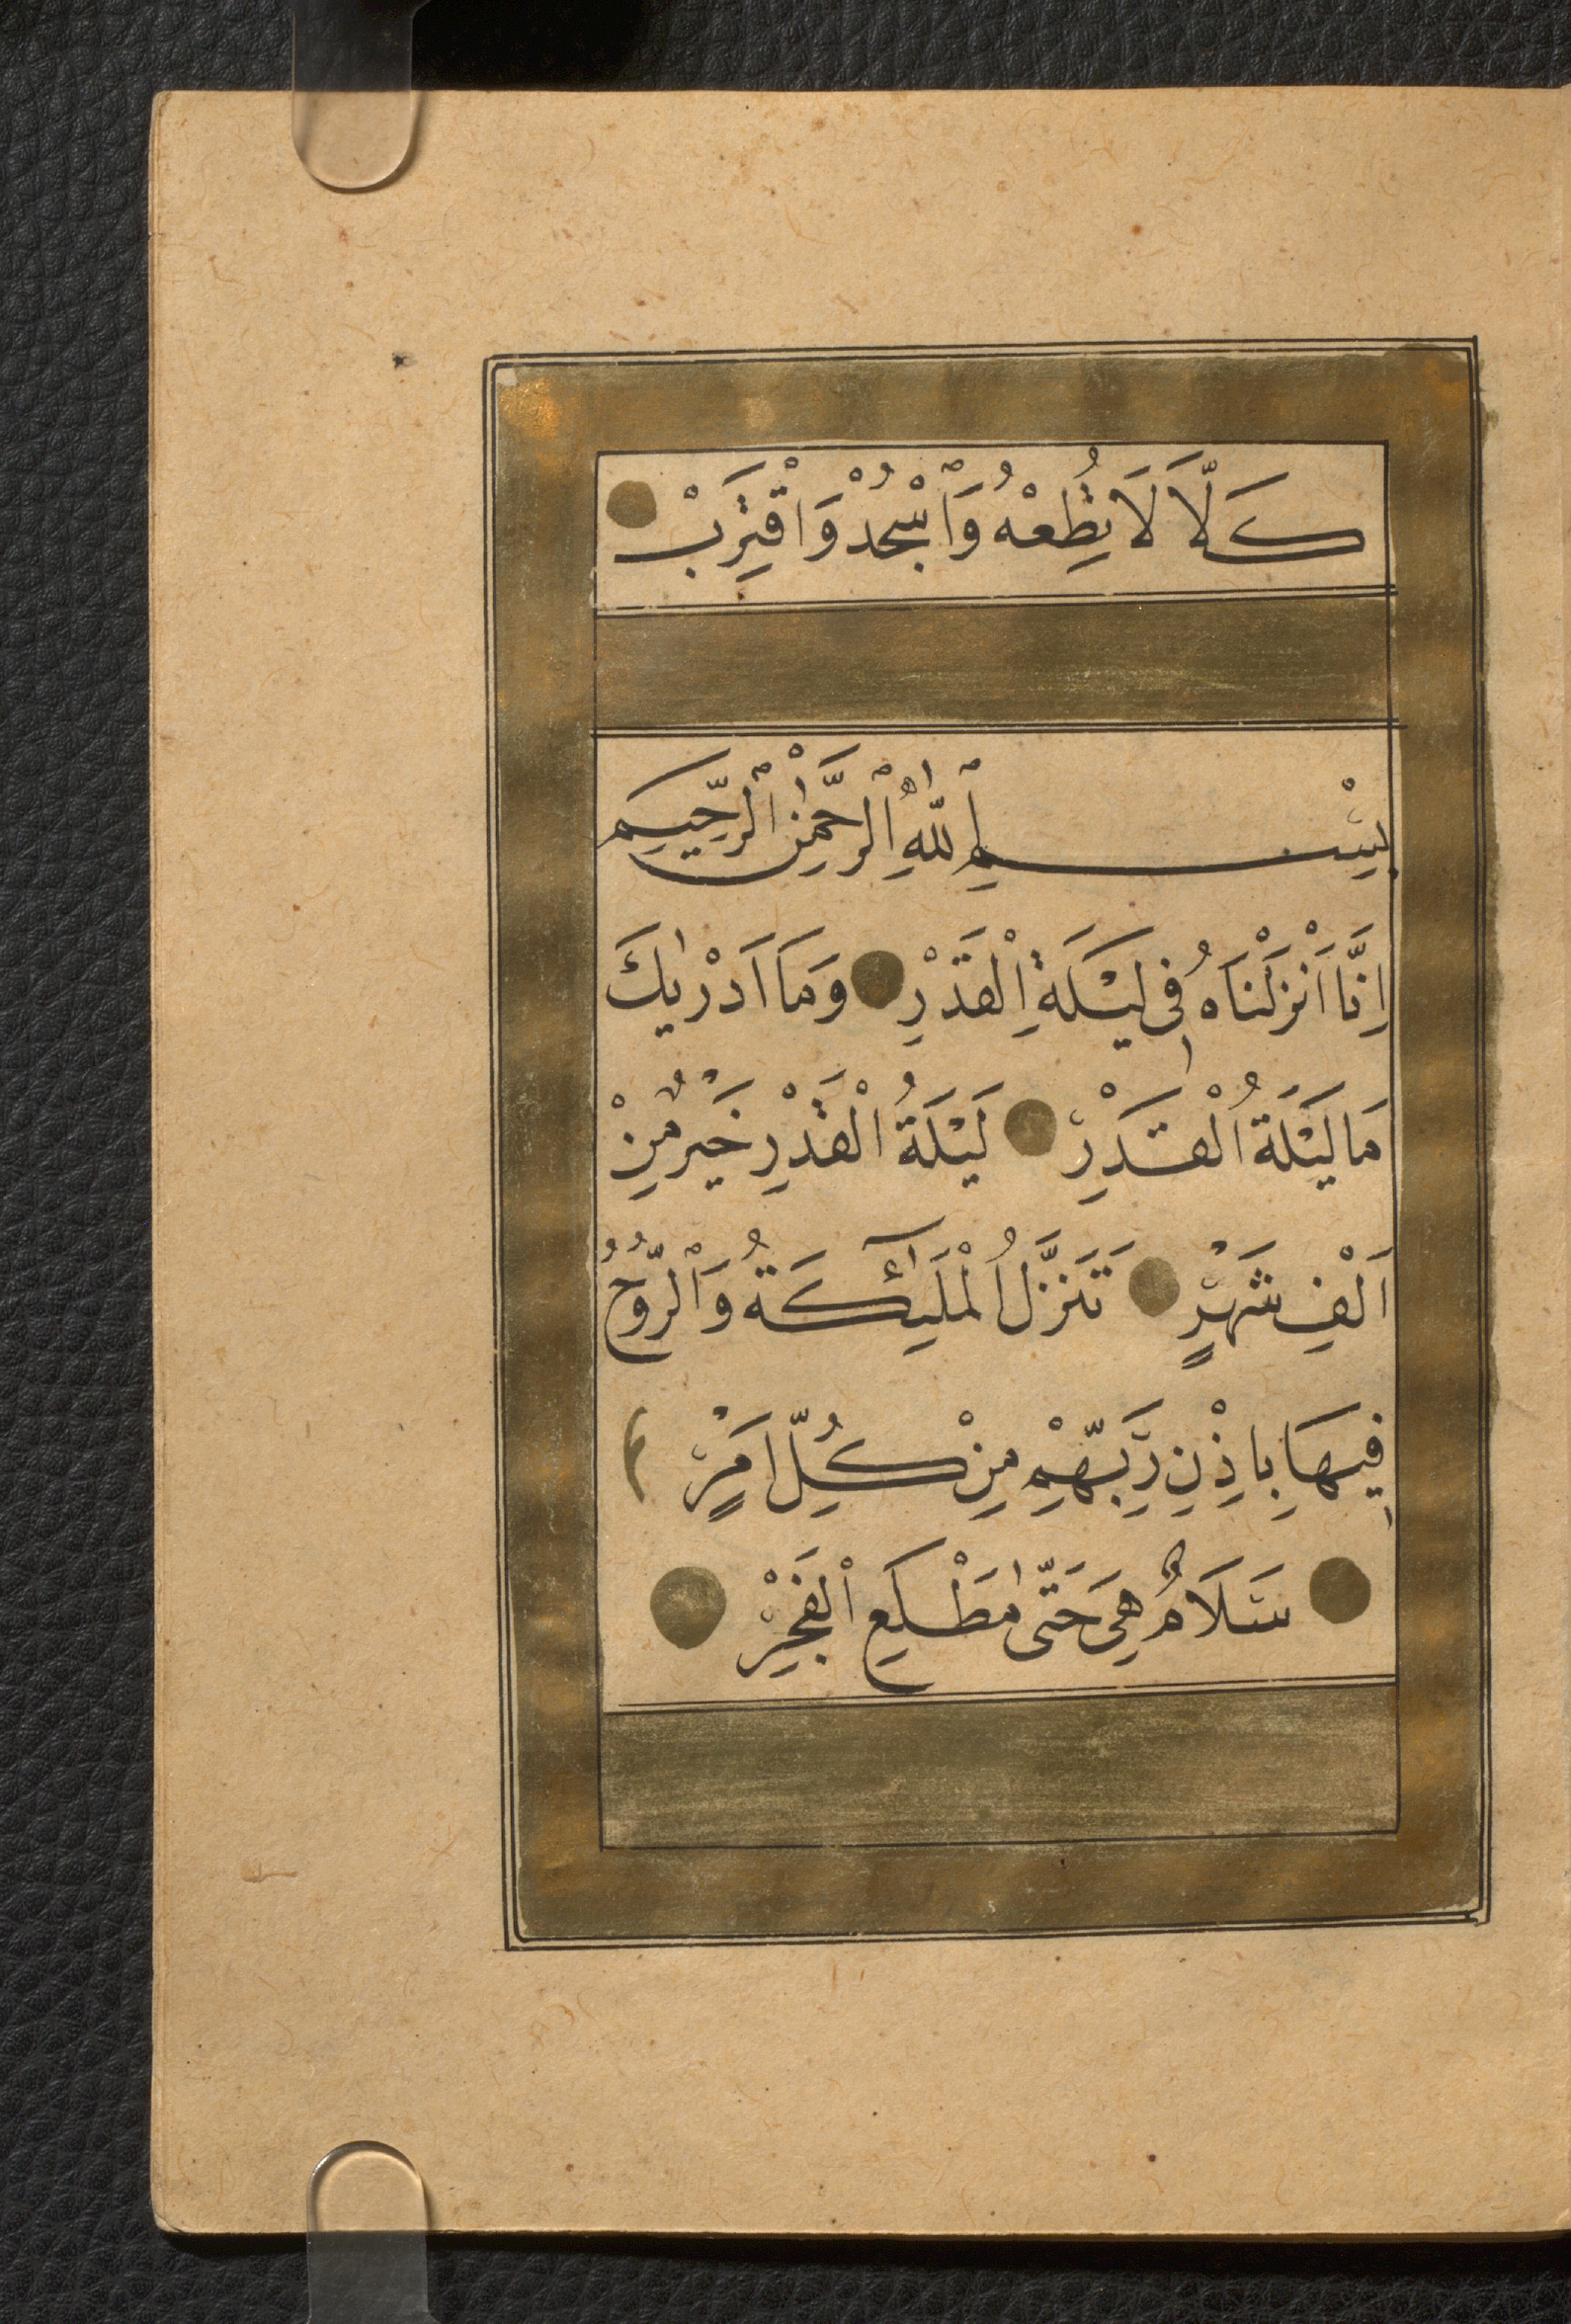 كَلَّا لَا تُطِعْهُ وَاسْجُدْ وَاقْتَرِبْ
بِسْمِ اللّٰهِ الرَّحْمٰنِ الرَّحِيمِ
اِنَّا اَنْزَلْنَاهُ فِى لَيْلَةِ الْقَدْرِ وَمَا اَدْرٰيكَ
مَا لَيْلَةُ الْقَدْرِ لَيْلَةُ الْقَدْرِ خَيْرٌ مِنْ
اَلْفِ شَهْرٍ تَنَزَّلُ الْمَلٰٓئِكَةُ وَالرُّوحُ
فِيهَا بِاِذْنِ رَبِّهِمْ مِنْ كُلِّ اَمْرٍ
سَلَامٌ هِىَ حَتّٰى مَطْلَعِ الْفَجْرِ